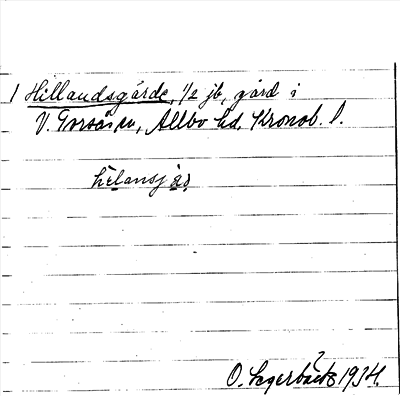 1 Hillandsgärde, 1/2 jb, gård i
V. Torsås sn, Allbo hd, Kronob. l.
hèlansj
O. Lagerbäck? 1934.